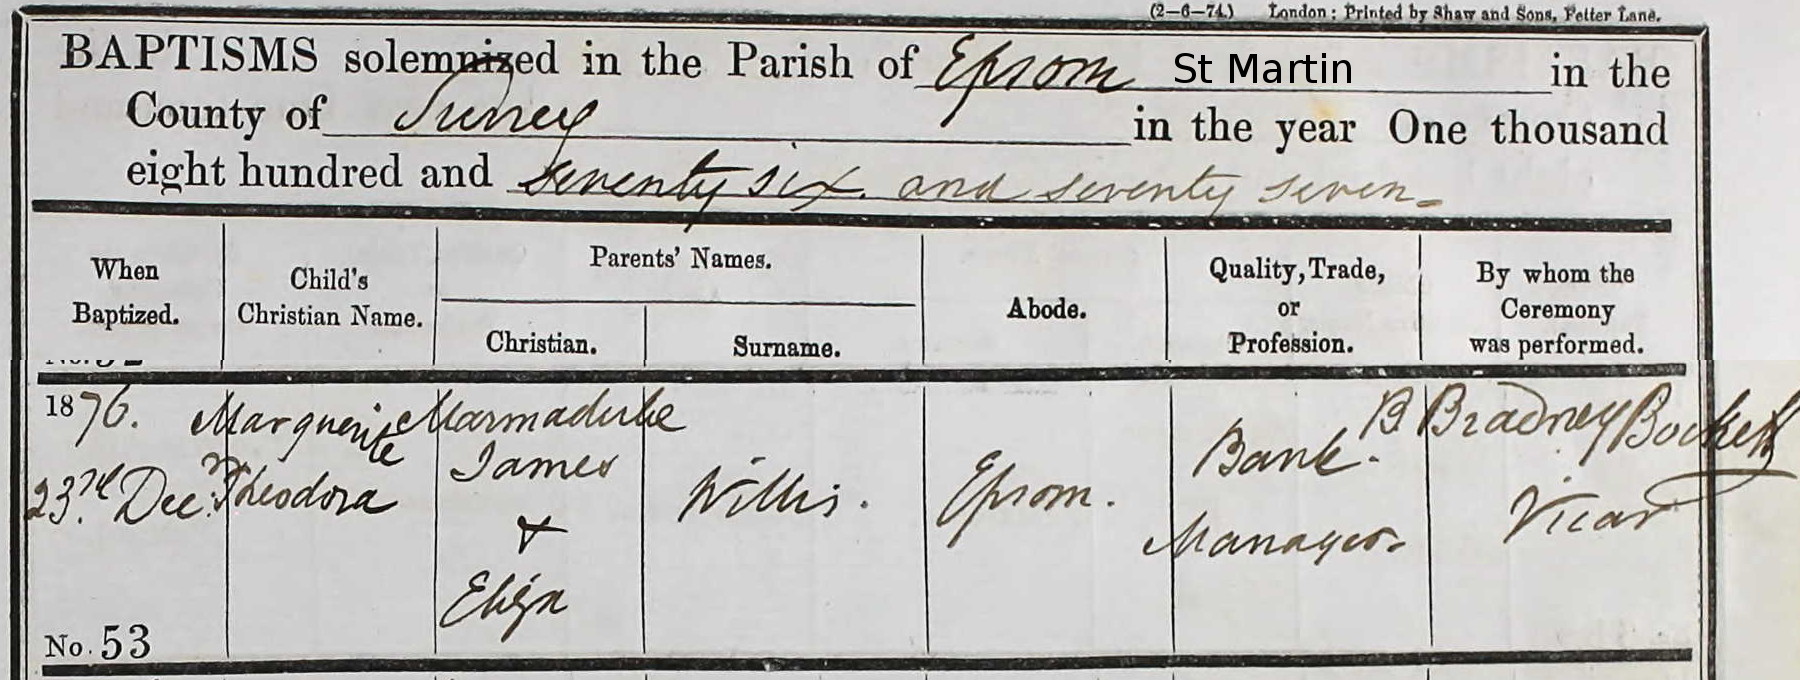 (2—6—74.) London: Printed by Shaw and Sons, Fetter Lane.
BAPTISMS solemnized in the Parish of Epsom St Martin in the
County of Surrey in the year One thousand
eight hundred and seventy six. and seventy seven.
When
Baptized.
Child's
Christian Name.
Parents' Names.
Christian.
Surname.
Abode.
Quality, Trade,
or
Profession.
By whom the
Ceremony
was performed.
1876.
23rd Dec.r
No. 53
Marguerite
Theodora
Marmaduke
James
&
Eliza
Willis.
Epsom.
Bank.
Manager.
B Bradney Bockett
Vicar